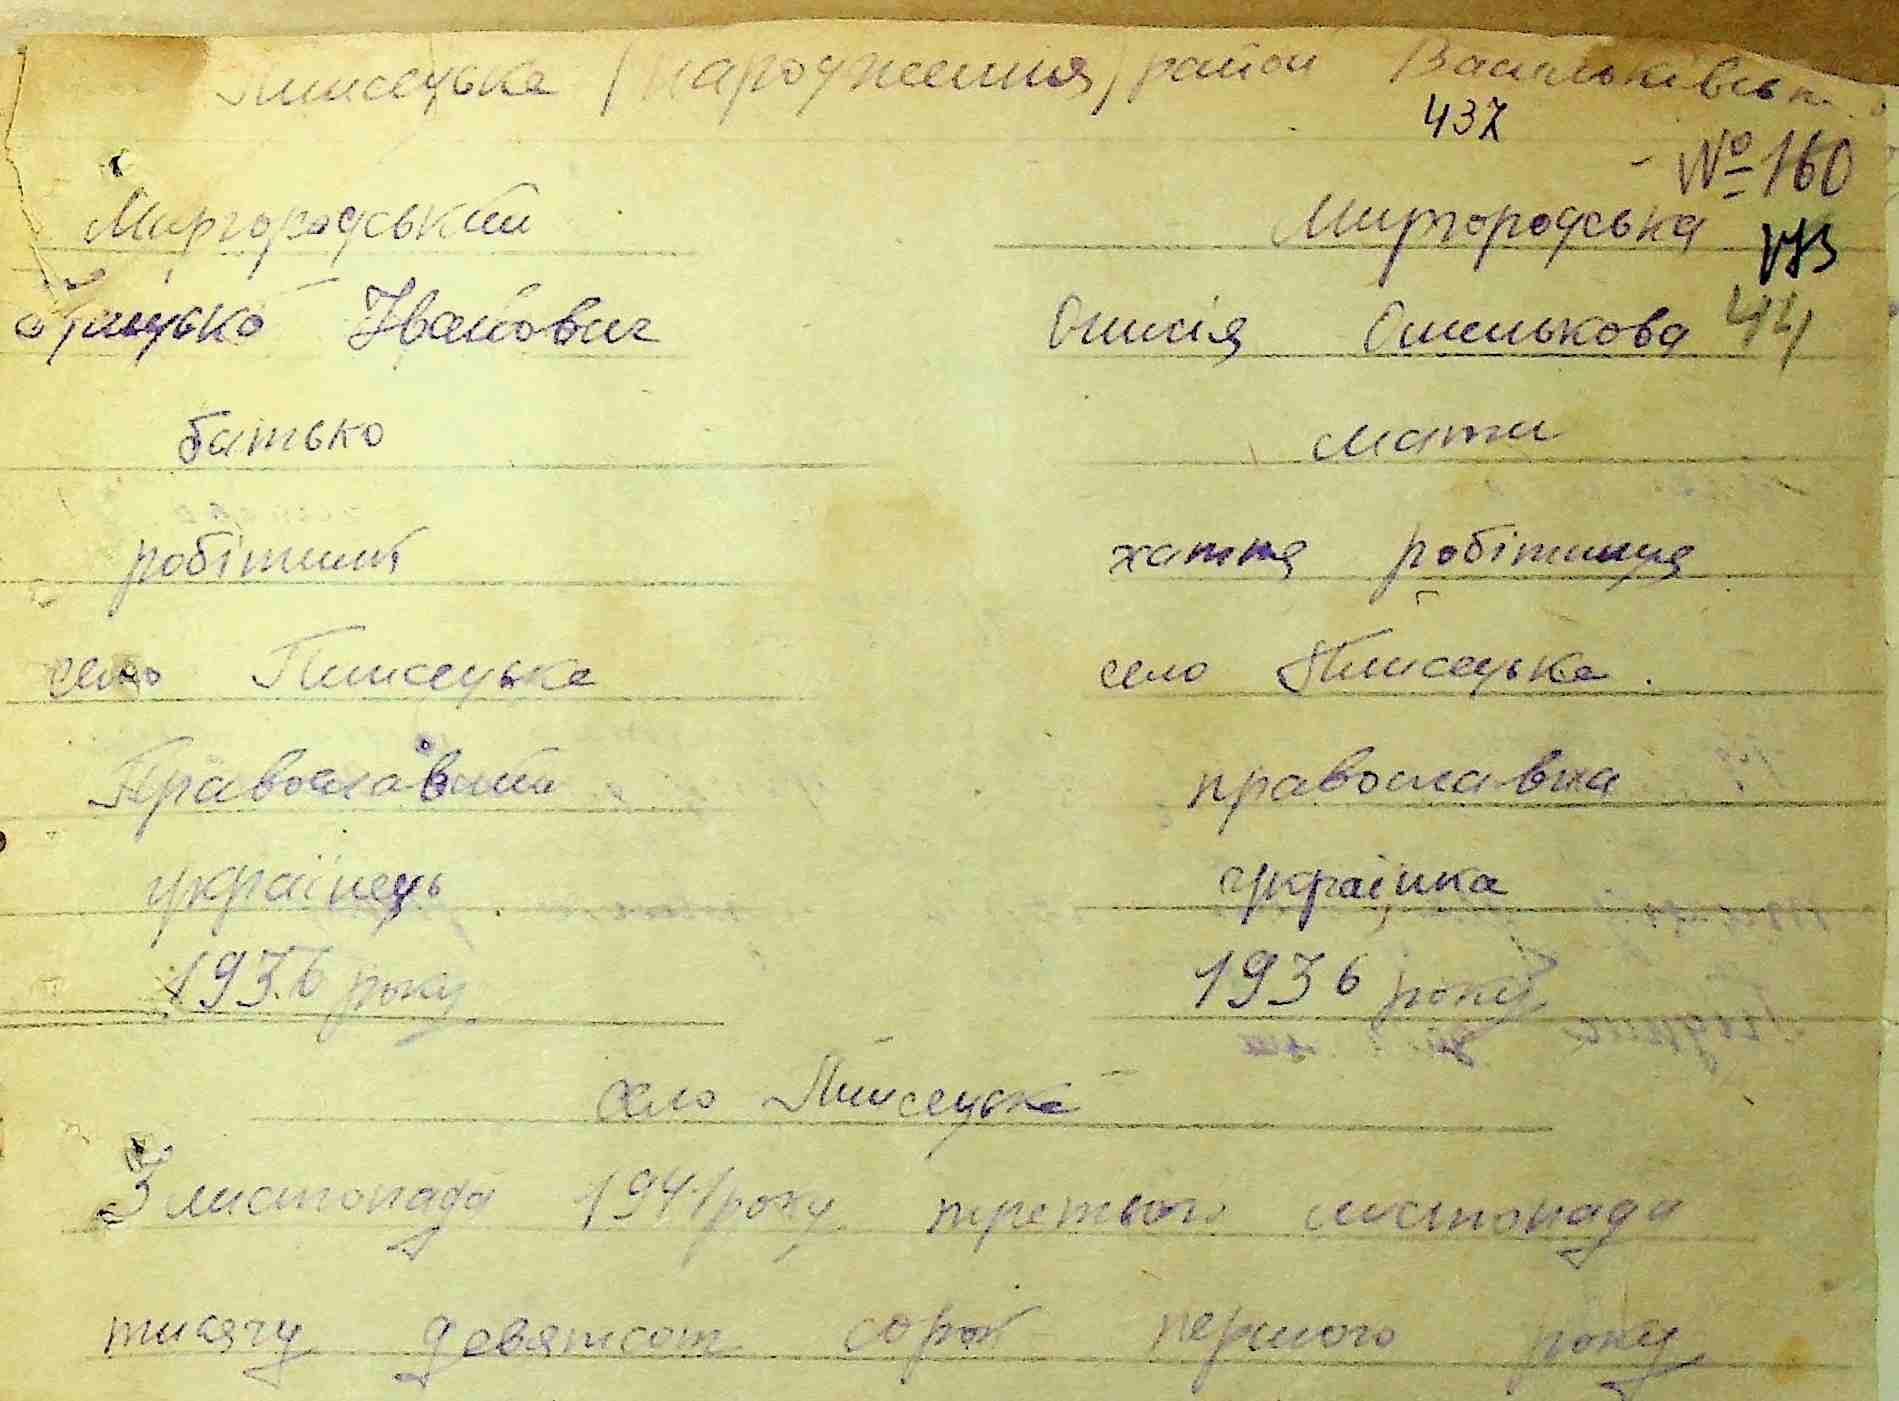 Плисецьке (народження) район Васильківськ
437
№160
Миргородський Миргородська
443
Грицько Іванович Олисія Омелькова 44
батько мати
робітник хатня робітниця
село Плисецьке село Плисецьке.
Православний православна
українець українка
1936 року 1936 року
село Плисецьке
3 листопада 1941 року третього листопада
тисячу девятсот сорок першого року